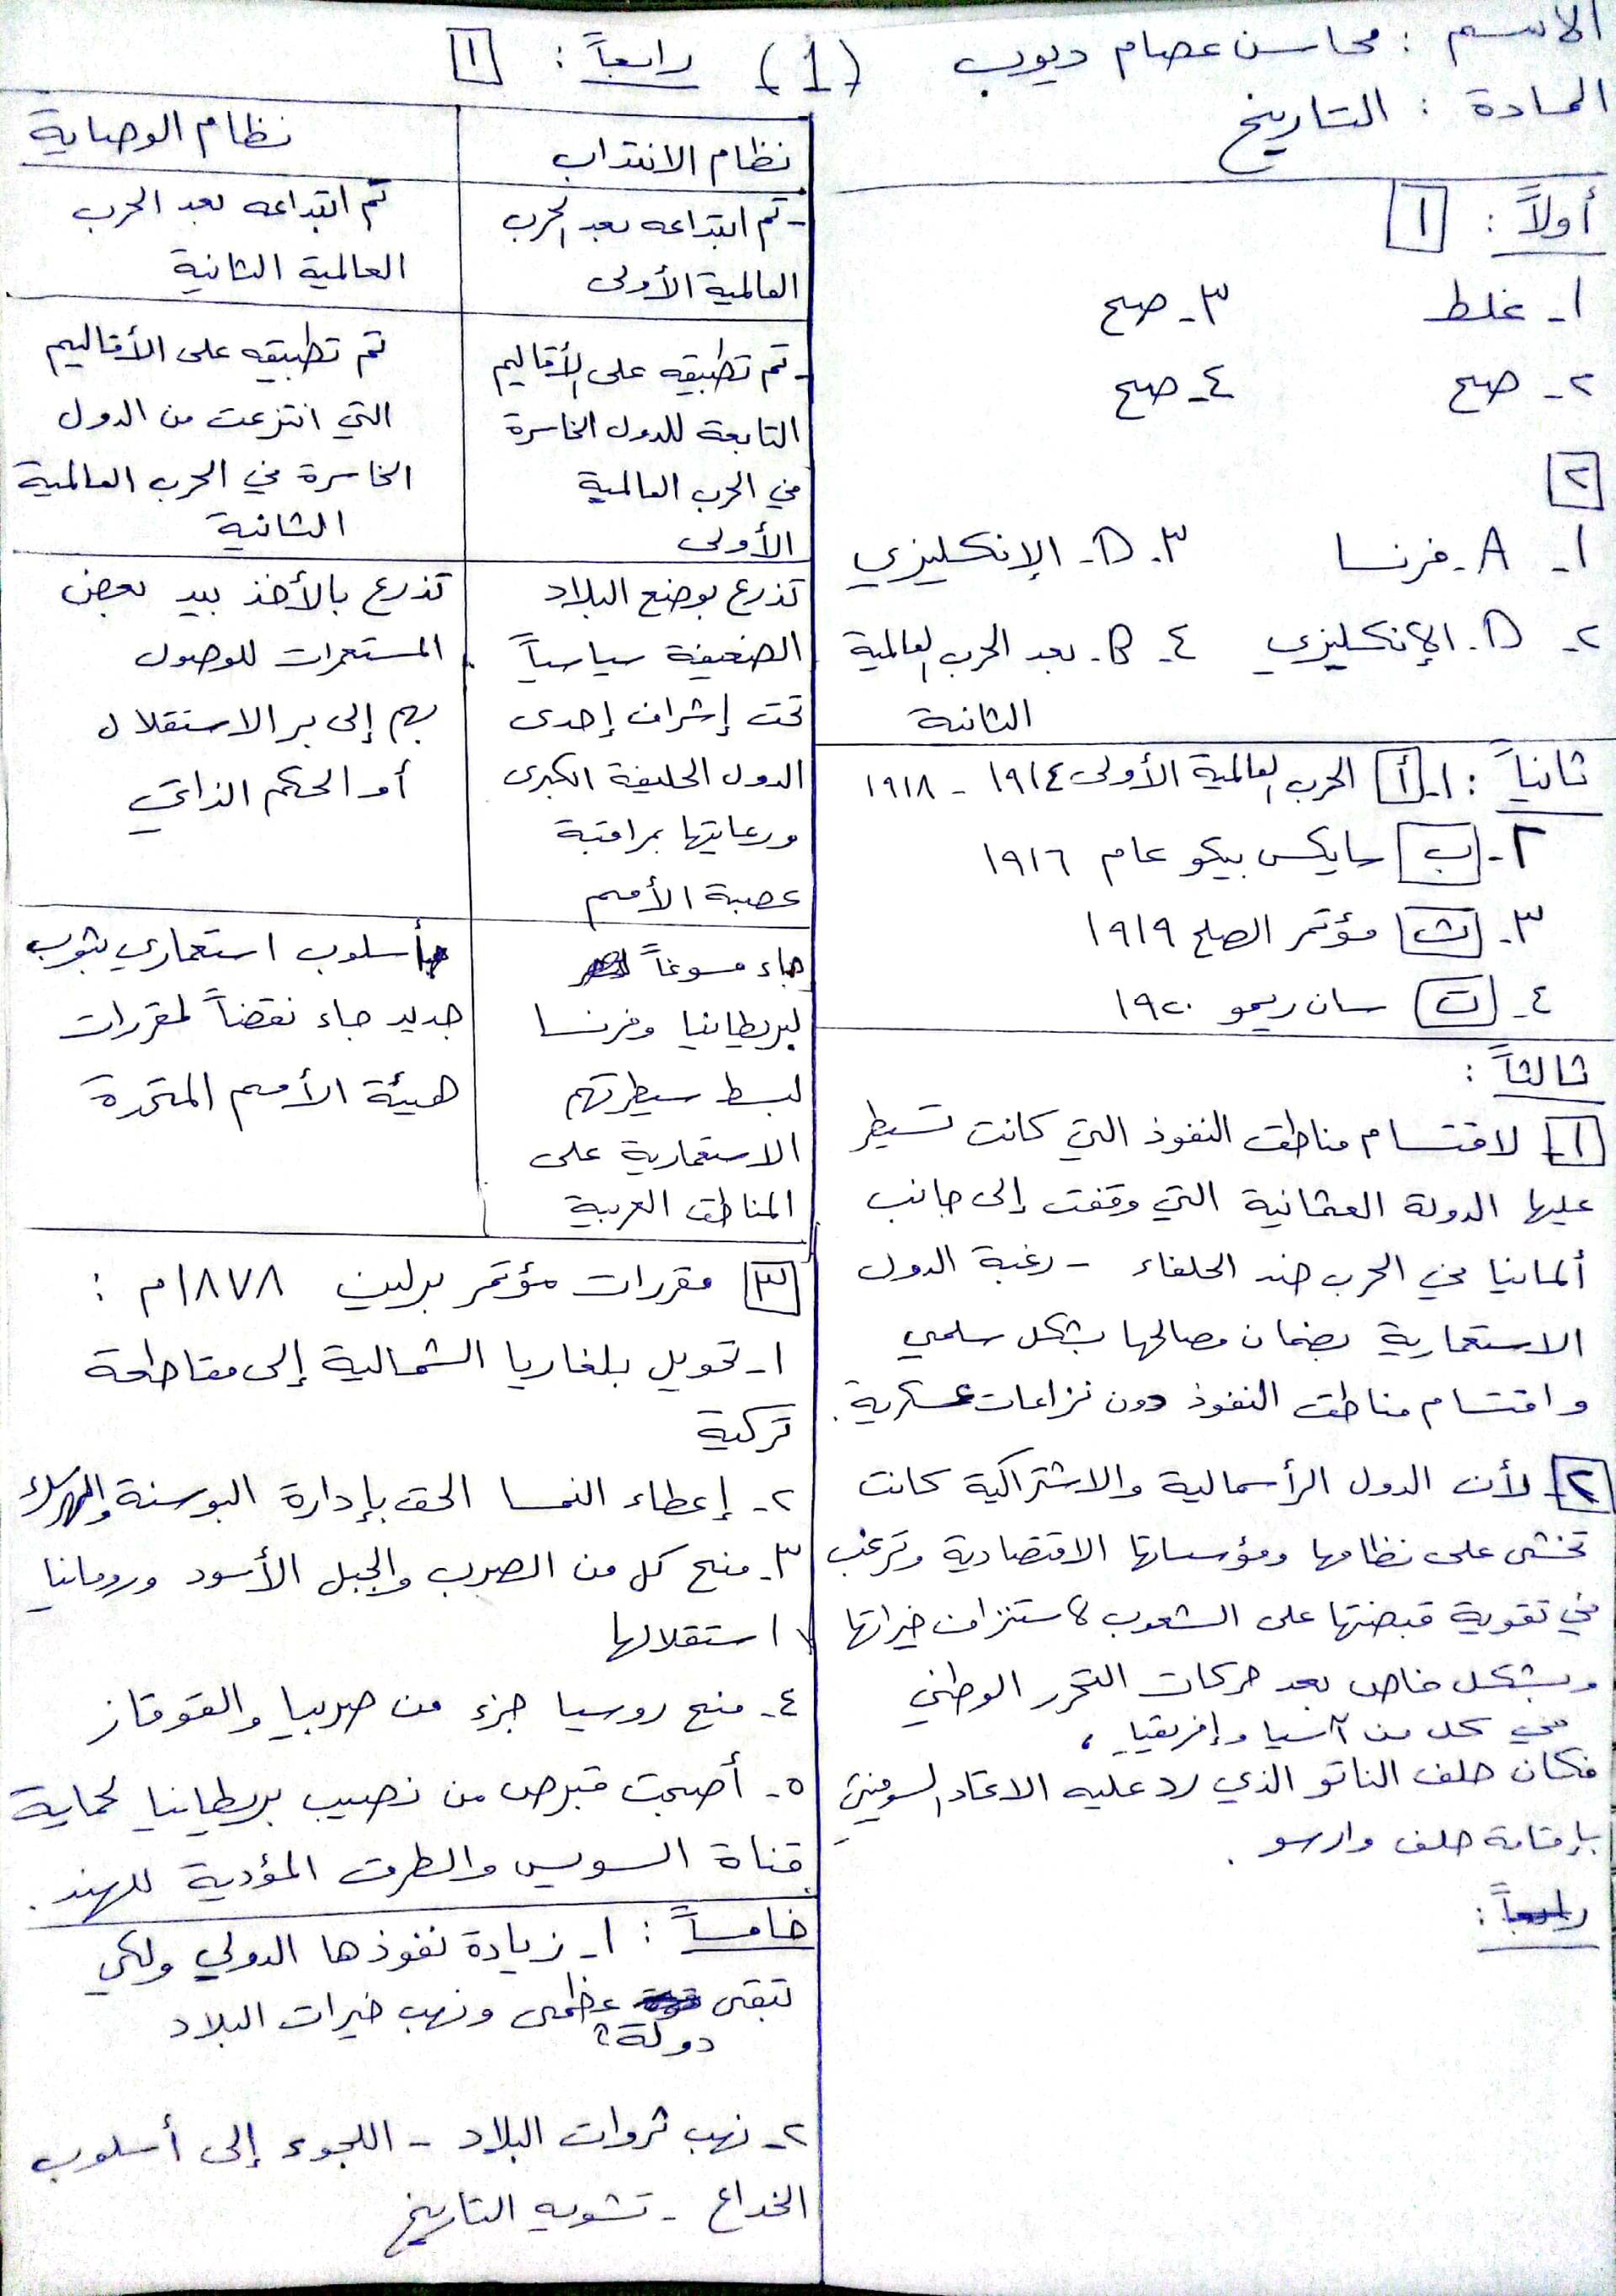 الاسم : محاسن عصام ديوب
المادة : التاريخ
(1)
أولاً : ١
١- غلط ٣- صح
٢- صح ٤- صح
٢
١- A- فرنسا ٣- D- الإنكليزي
٢- D- الإنكليزي ٤- B- بعد الحرب العالمية
الثانية
ثانياً : ١- أ الحرب العالمية الأولى ١٩١٤ - ١٩١٨
٢- ب سايكس بيكو عام ١٩١٦
٣- ث مؤتمر الصلح ١٩١٩
٤- ت سان ريمو ١٩٢٠
ثالثاً :
١- لاقتسام مناطق النفوذ التي كانت تسيطر
عليها الدولة العثمانية التي وقفت إلى جانب
ألمانيا في الحرب ضد الحلفاء - رغبة الدول
الاستعمارية بضمان مصالحها بشكل سلمي
واقتسام مناطق النفوذ دون نزاعات عسكرية.
٢- لأن الدول الرأسمالية والاشتراكية كانت
تخشى على نظامها ومؤسساتها الاقتصادية وترغب
في تقوية قبضتها على الشعوب لاستنزاف خيراتها
وبشكل خاص بعد حركات التحرر الوطني
في كل من آسيا وإفريقيا ،
فكان حلف الناتو الذي رد عليه الاتحاد السوفيتي
بإقامة حلف وارسو .
رابعاً :
رابعاً : ١
نظام الانتداب
- تم ابتداعه بعد الحرب
العالمية الأولى
- تم تطبيقه على الأقاليم
التابعة للدول الخاسرة
في الحرب العالمية
الأولى
تذرع بوضع البلاد
الضعيفة سياسياً
تحت إشراف إحدى
الدول الحليفة الكبرى
ورعايتها بمراقبة
عصبة الأمم
جاء مسوغاً
لبريطانيا وفرنسا
لبسط سيطرتهم
الاستعمارية على
المناطق العربية
نظام الوصاية
تم ابتداعه بعد الحرب
العالمية الثانية
تم تطبيقه على الأقاليم
التي انتزعت من الدول
الخاسرة في الحرب العالمية
الثانية
تذرع بالأخذ بيد بعض
المستعمرات للوصول
بهم إلى بر الاستقلال
أو الحكم الذاتي
أسلوب استعماري بثوب
جديد جاء نقضاً لمقررات
هيئة الأمم المتحدة
٣ مقررات مؤتمر برلين ١٨٧٨م :
١- تحويل بلغاريا الشمالية إلى مقاطعة
تركية
٢- إعطاء النمسا الحق بإدارة البوسنة والهرسك
٣- منح كل من الصرب والجبل الأسود ورومانيا
استقلالها
٤- منح روسيا جزء من صربيا والقوقاز
٥- أصبحت قبرص من نصيب بريطانيا لحماية
قناة السويس والطرق المؤدية للهند.
خامساً : ١- زيادة نفوذها الدولي ولكي
تبقى دولة عظمى ونهب خيرات البلاد
٢- نهب ثروات البلاد - اللجوء إلى أسلوب
الخداع - تشويه التاريخ